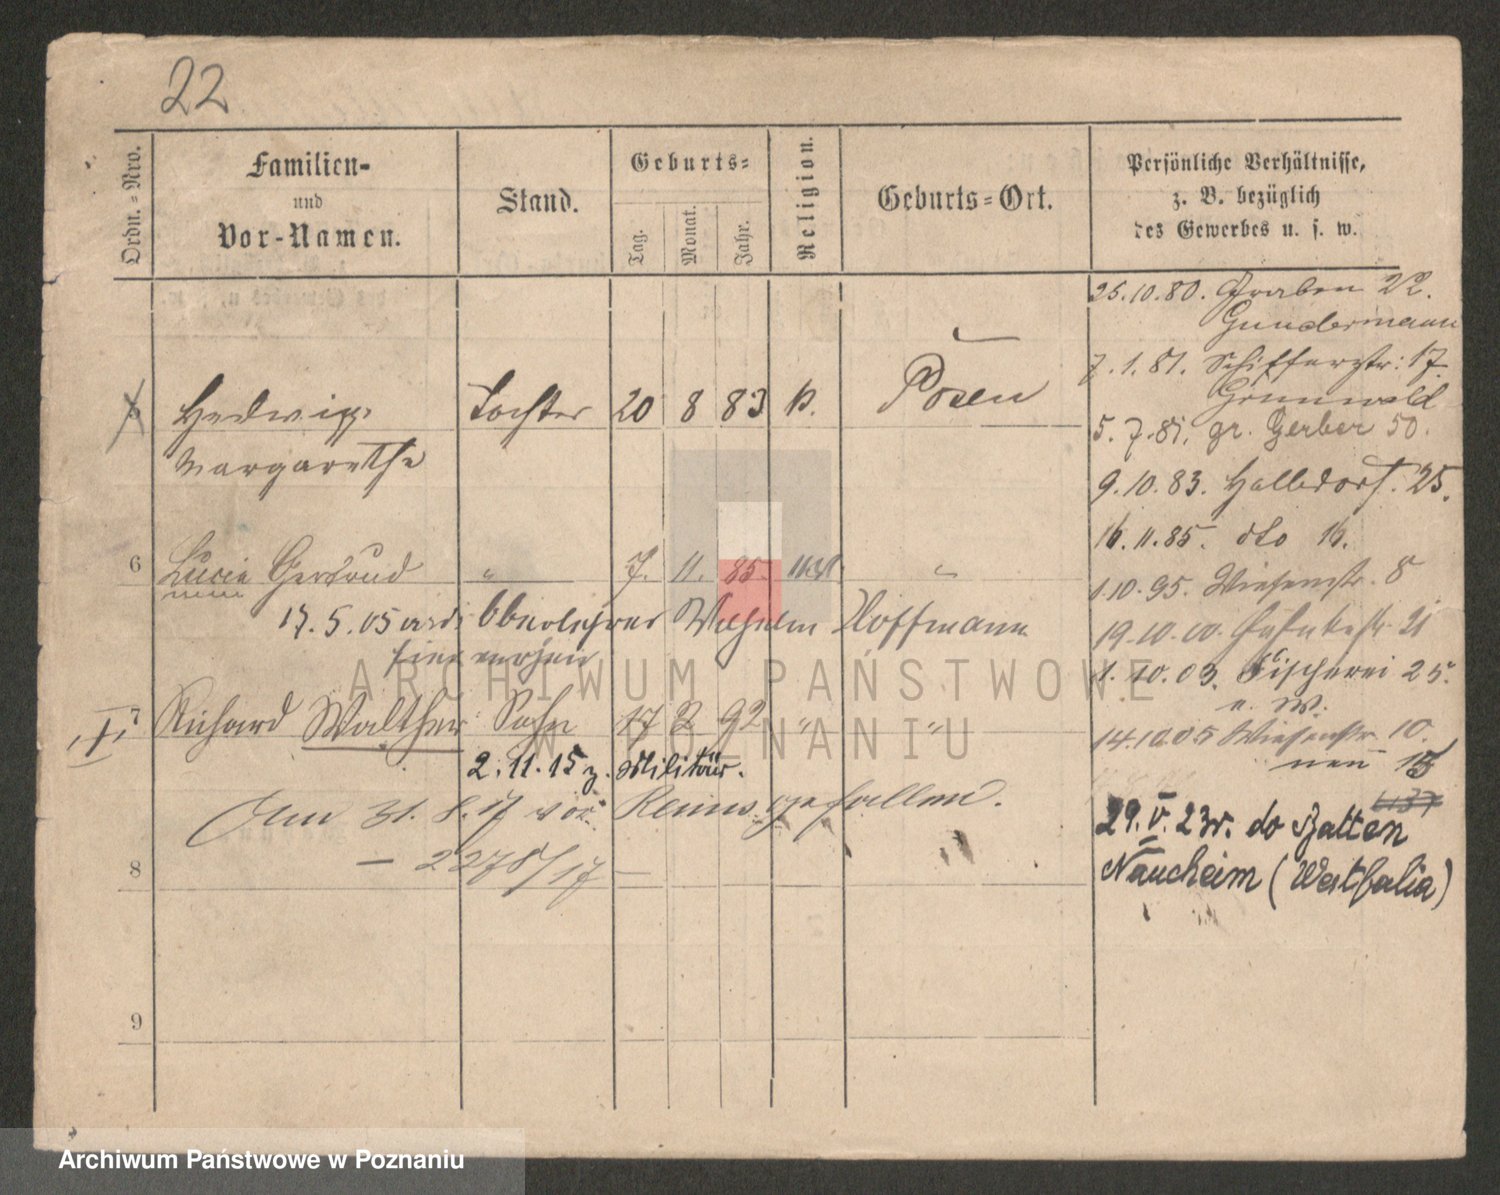 22
Ordn.-Nro.
Familien-
und
Vor-Namen.
Stand.
Geburts-
Tag.
Monat.
Jahr.
Religion.
Geburts-Ort.
Persönliche Verhältnisse,
z. B. bezüglich
des Gewerbes u. s. w.
25.10.80. Graben 22.
Gundermann
7.1.81. Schifferstr: 17.
Grunwald
5.7.81. gr. Gerber 50.
9.10.83. Halbdorf. 25.
16.11.85. dto 16.
1.10.95. Wiesenstr. 8
19.10.00.
1.10.03. Fischerei 25.
14.10.05 Wiesenstr. 10.
neu 15
29. V. 23r. do Batten
Nauheim (Westfalia)
Hedwig Tochter 20 8 83 k. Posen
Margarethe
6 Lucie Gertrud " 7. 11. 85. "
17.5.05 Oberlehrer Wilhelm Hoffmann
7 Richard Walther Sohn 17 2 92 " "
2.11.15 z. Militär.
Am 31.8.17 vor Reims gefallen.
– 2278/17 –
8
9
ARCHIWUM PAŃSTWOWE
W POZNANIU
Archiwum Państwowe w Poznaniu